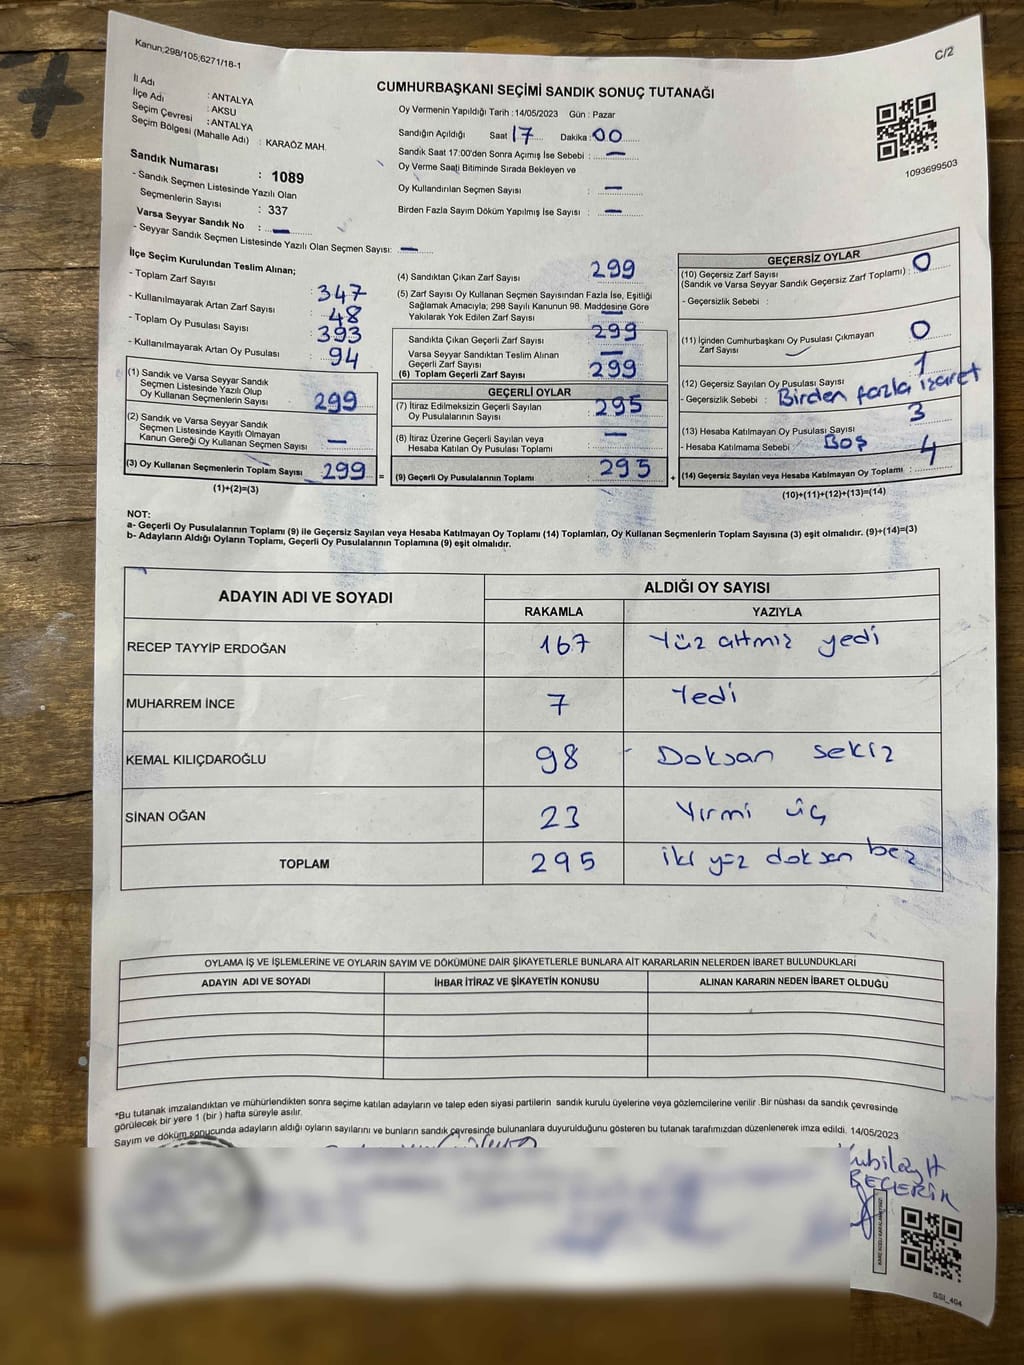 Kanun;298/105;6271/18-1
C/2
CUMHURBAŞKANI SEÇİMİ SANDIK SONUÇ TUTANAĞI
İl Adı : ANTALYA
İlçe Adı : AKSU
Seçim Çevresi : ANTALYA
Seçim Bölgesi (Mahalle Adı) : KARAÖZ MAH.
Sandık Numarası : 1089
- Sandık Seçmen Listesinde Yazılı Olan
Seçmenlerin Sayısı : 337
Varsa Seyyar Sandık No : —
- Seyyar Sandık Seçmen Listesinde Yazılı Olan Seçmen Sayısı: —
Oy Vermenin Yapıldığı Tarih : 14/05/2023 Gün : Pazar
Sandığın Açıldığı Saat 17 Dakika : 00
Sandık Saat 17:00'den Sonra Açımış İse Sebebi : —
Oy Verme Saati Bitiminde Sırada Bekleyen ve
Oy Kullandırılan Seçmen Sayısı : —
Birden Fazla Sayım Döküm Yapılmış İse Sayısı : —
1093699503
İlçe Seçim Kurulundan Teslim Alınan;
- Toplam Zarf Sayısı : 347
- Kullanılmayarak Artan Zarf Sayısı : 48
- Toplam Oy Pusulası Sayısı : 393
- Kullanılmayarak Artan Oy Pusulası : 94
(1) Sandık ve Varsa Seyyar Sandık
Seçmen Listesinde Yazılı Olup
Oy Kullanan Seçmenlerin Sayısı : 299
(2) Sandık ve Varsa Seyyar Sandık
Seçmen Listesinde Kayıtlı Olmayan
Kanun Gereği Oy Kullanan Seçmen Sayısı : —
(3) Oy Kullanan Seçmenlerin Toplam Sayısı : 299 =
(1)+(2)=(3)
(4) Sandıktan Çıkan Zarf Sayısı 299
(5) Zarf Sayısı Oy Kullanan Seçmen Sayısından Fazla İse, Eşitliği
Sağlamak Amacıyla; 298 Sayılı Kanunun 98. Maddesine Göre
Yakılarak Yok Edilen Zarf Sayısı —
Sandıkta Çıkan Geçerli Zarf Sayısı : 299
Varsa Seyyar Sandıktan Teslim Alınan
Geçerli Zarf Sayısı —
(6) Toplam Geçerli Zarf Sayısı : 299
GEÇERLİ OYLAR
(7) İtiraz Edilmeksizin Geçerli Sayılan
Oy Pusulalarının Sayısı : 295
(8) İtiraz Üzerine Geçerli Sayılan veya
Hesaba Katılan Oy Pusulası Toplamı : —
(9) Geçerli Oy Pusulalarının Toplamı : 295 +
GEÇERSİZ OYLAR
(10) Geçersiz Zarf Sayısı
(Sandık ve Varsa Seyyar Sandık Geçersiz Zarf Toplamı) : 0
- Geçersizlik Sebebi :
(11) İçinden Cumhurbaşkanı Oy Pusulası Çıkmayan
Zarf Sayısı 0
(12) Geçersiz Sayılan Oy Pusulası Sayısı : 1
- Geçersizlik Sebebi : Birden fazla işaret
(13) Hesaba Katılmayan Oy Pusulası Sayısı : 3
- Hesaba Katılmama Sebebi : Boş
(14) Geçersiz Sayılan veya Hesaba Katılmayan Oy Toplamı : 4
(10)+(11)+(12)+(13)=(14)
NOT:
a- Geçerli Oy Pusulalarının Toplamı (9) ile Geçersiz Sayılan veya Hesaba Katılmayan Oy Toplamı (14) Toplamları, Oy Kullanan Seçmenlerin Toplam Sayısına (3) eşit olmalıdır. (9)+(14)=(3)
b- Adayların Aldığı Oyların Toplamı, Geçerli Oy Pusulalarının Toplamına (9) eşit olmalıdır.
ADAYIN ADI VE SOYADI ALDIĞI OY SAYISI
RAKAMLA YAZIYLA
RECEP TAYYİP ERDOĞAN 167 Yüz altmış yedi
MUHARREM İNCE 7 Yedi
KEMAL KILIÇDAROĞLU 98 Doksan sekiz
SİNAN OĞAN 23 Yirmi üç
TOPLAM 295 iki yüz doksan beş
OYLAMA İŞ VE İŞLEMLERİNE VE OYLARIN SAYIM VE DÖKÜMÜNE DAİR ŞİKAYETLERLE BUNLARA AİT KARARLARIN NELERDEN İBARET BULUNDUKLARI
ADAYIN ADI VE SOYADI İHBAR İTİRAZ VE ŞİKAYETİN KONUSU ALINAN KARARIN NEDEN İBARET OLDUĞU
*Bu tutanak imzalandıktan ve mühürlendikten sonra seçime katılan adayların ve talep eden siyasi partilerin sandık kurulu üyelerine veya gözlemcilerine verilir .Bir nüshası da sandık çevresinde
görülecek bir yere 1 (bir ) hafta süreyle asılır.
Sayım ve döküm sonucunda adayların aldığı oyların sayılarını ve bunların sandık çevresinde bulunanlara duyurulduğunu gösteren bu tutanak tarafımızdan düzenlenerek imza edildi. 14/05/2023
Kubilay H
BEÇERİK
SSI_404